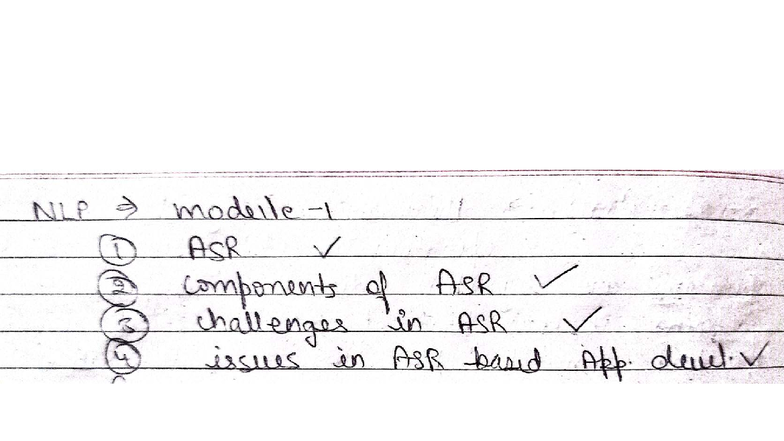 NLP ⇒ module -1
① ASR ✓
② components of ASR ✓
③ challenges in ASR ✓
④ issues in ASR based App. devel. ✓